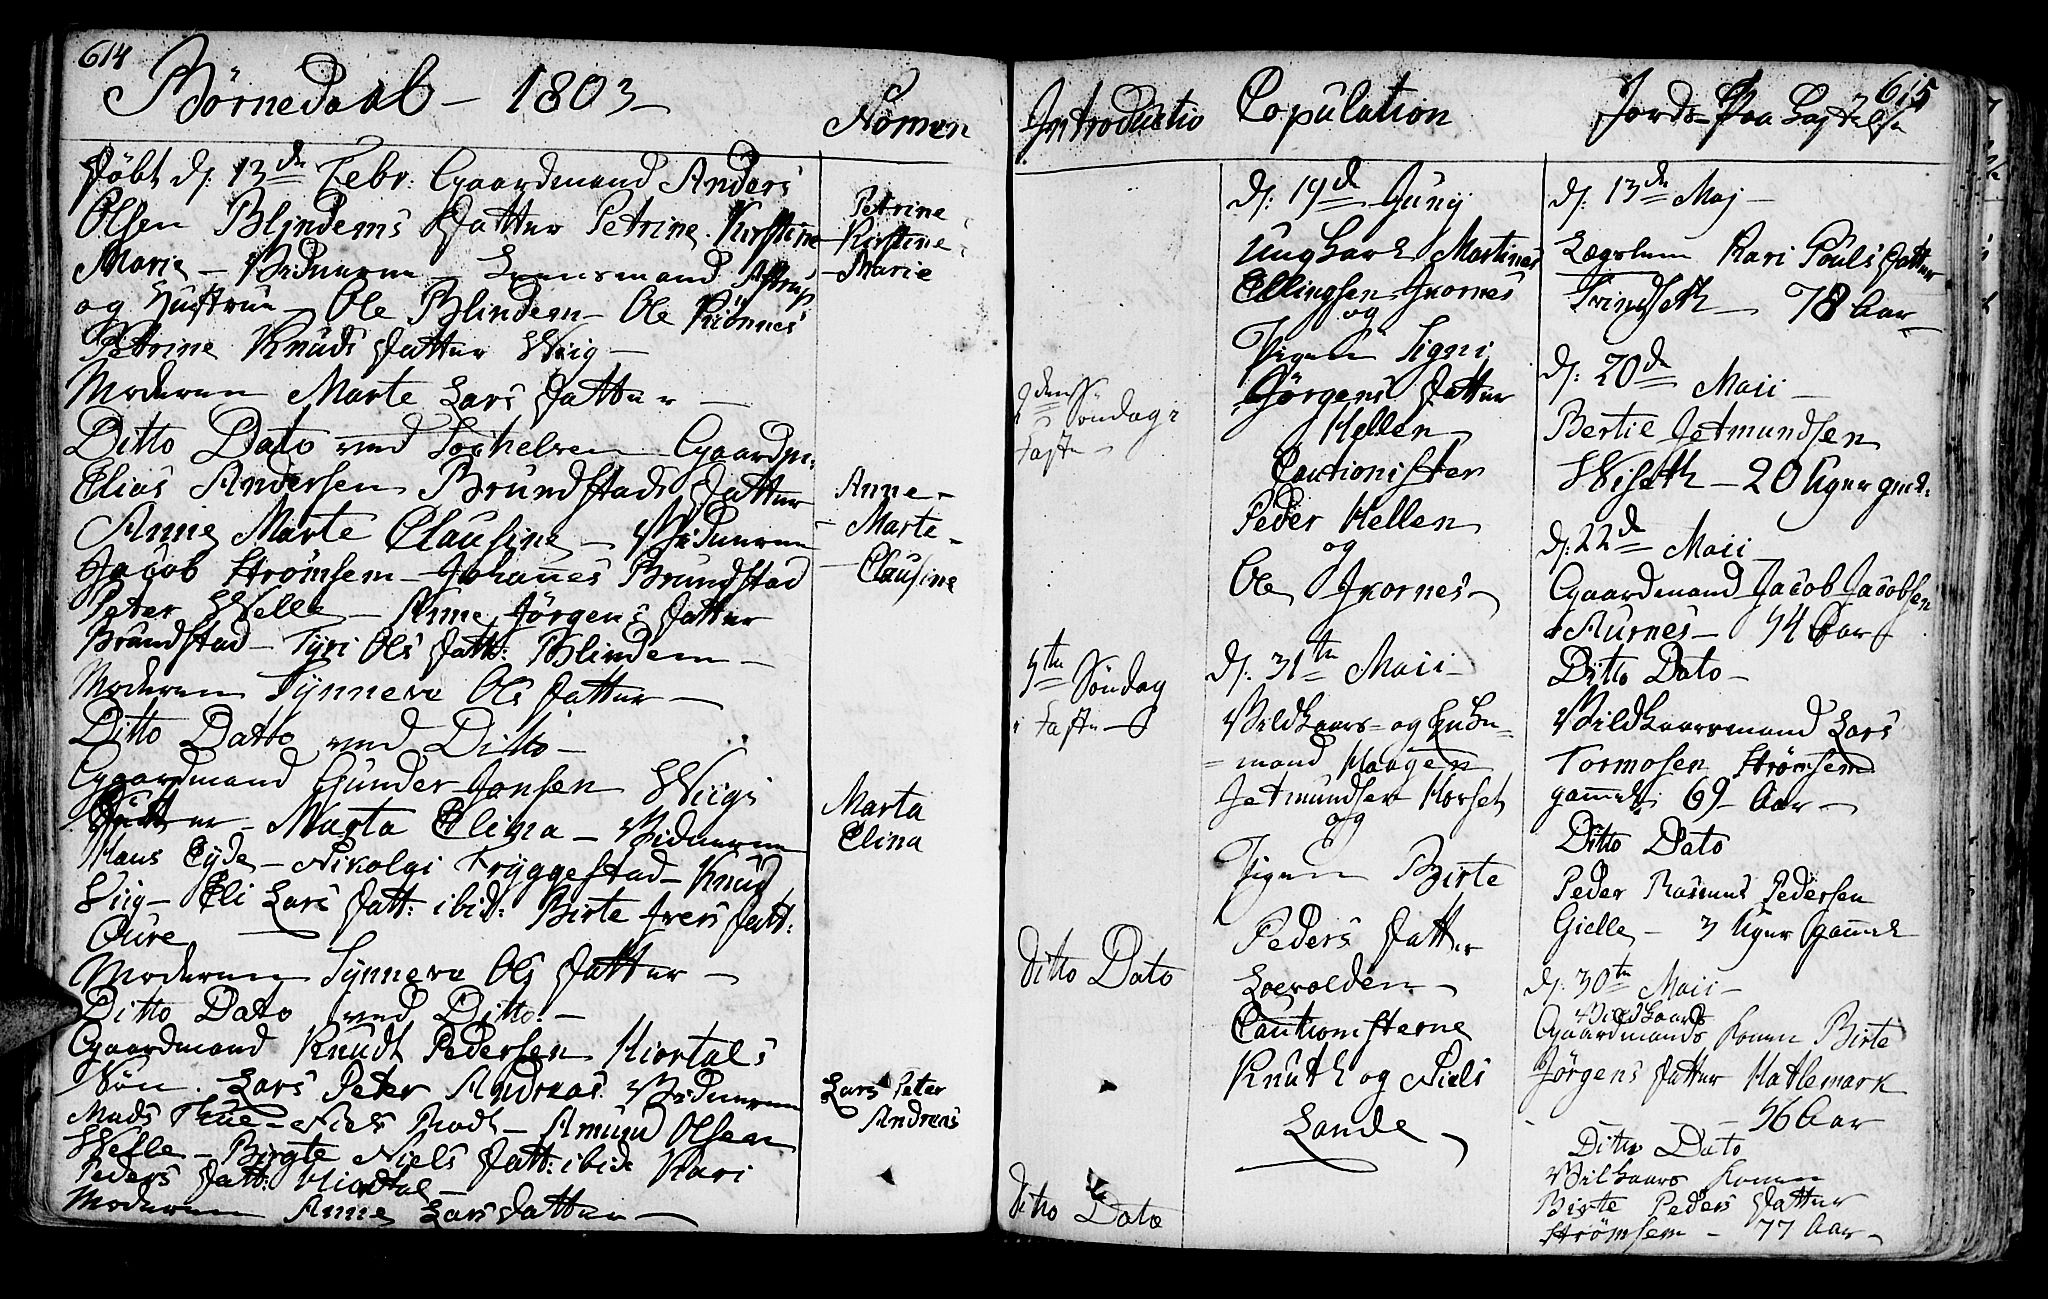 614
Börnedaab - 1803 -
Nomen
Döbt d: 13de Febr: Gaardmand Anders
Olsen Blindems Datter Petrine Kirstine
Marie - Vidnerne - Lensmand Astrup
og Hustrue - Ole Blindem - Ole Rönnes
Petrine Knuds Datter Wiig -
Moderen Marte Lars Datter -
Petrine
Kirstine
Marie
Ditto Dato ved Gaardm:
Elias Andersen Brundstads Datter
Anne Marte Clausine - Vidnerne
Jacob Strømsem - Johannes Brundstad
Peter Welle - Anne Jörgens Datter
Brundstad - Tyri Ols Datt: Blindem -
Moderen Synneve Ols Datter -
Anne -
Marte -
Clausine
Ditto Datto ved Ditto -
Gaardmand Gunder Jonsen Wiigs
Datter - Marta Elina - Vidnerne
Hans Eyde - Nikolai Tryggestad - Knud
Wiig - Eli Lars Datt: ibid: Birte Ivers Datt:
Oure
Moderen Synneve Ols Datter -
Marta
Elina
Ditto Dato ved Ditto: -
Gaardmand Knudt Pedersen Hiortals
Sön. Lars Peter Andreas. Vidnerne
Mads Thue - Niels - Amund Olsen
Welle - Birgte Niels Datt: ibid Kari
Peders Datt: Hiortdal -
Moderen Anne Lars Datter -
Lars Peter
Andreas
615
Introductio
Copulation
Jords Paa Kastelse
2den Söndag i
Faste -
5te Söndag
i Faste -
Ditto Dato
Ditto Dato
d: 19de Junij
Ungkarl Martinus
Ellingsen Giornes
og
Pigen Signi
Jörgens Datter
Hellen
Cautionister
Peder Hellen
og
Ole Giornes -
d: 31te Maii -
Vildkaars- og Enke-
=mand Haagen
Jetmundsen Horset
og
Pigen Birte
Peders Datter
Loevolden -
Cautionisterne
Knuth og Niels
Lande -
d: 13de Maj -
Lægslem Kari Pouls Datter
Trindseth - 78 Aar -
d: 20de Maii -
Bertie Jetmundsen
Wiseth - 20 Uger gml:
d: 22de Maii -
Gaardmand Jacob Jacobsen
Aurnes - 54 Aar
Ditto Dato -
Vildkaarsmand Lars
Tormosen Strømsem
gammel 69 Aar -
Ditto Dato
Peder Rasmus Pedersen
Gielle - 3 Uger gammel
d: 30te Maii -
Vildkaars
Gaardmands Konen Birte
Jörgens Datter Hatlemark
- 56 Aar
Ditto Dato
Vilkaars Konen
Birte Peders Datter
Strømsem - 77 Aar -